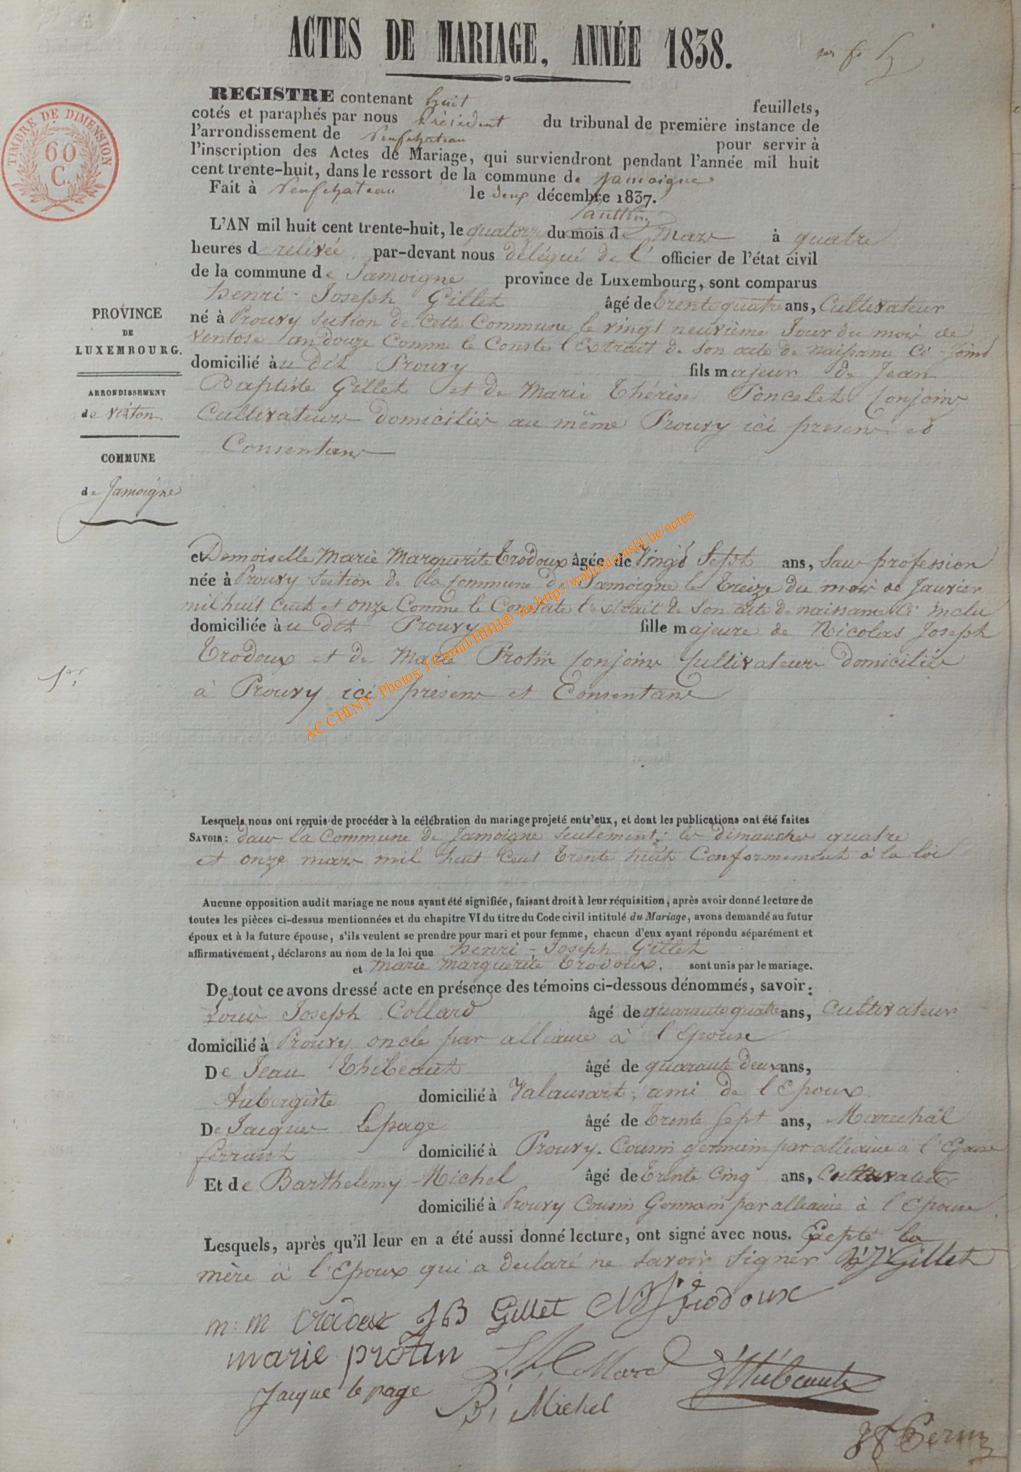 ACTES DE MARIAGE, ANNÉE 1838.
REGISTRE contenant huit feuillets,
cotés et paraphés par nous Président du tribunal de première instance de
l'arrondissement de Neufchateau pour servir à
l'inscription des Actes de Mariage, qui surviendront pendant l'année mil huit
cent trente-huit, dans le ressort de la commune de Jamoigne
Fait à Neufchateau le deux décembre 1837.
TIMBRE DE DIMENSION
60
C.
L'AN mil huit cent trente-huit, le quatorze du mois de Mars à quatre
heures de relivée par-devant nous délégué de l' officier de l'état civil
de la commune de Jamoigne province de Luxembourg, sont comparus
henri-Joseph Gillet âgé de trente quatre ans, Cultivateur
né à Prouvy Section de cette Commune le vingt neuvième Jour du moi de
Ventose an douze Comme le Conste l'Extrait de son acte de naissance Ci-Joint
domicilié au dit Prouvy fils majeur de Jean
Baptiste Gillet et de Marie Thérèse Poncelet Conjoins
Cultivateurs domiciliés au même Prouvy ici présens et
Consentans
PROVINCE
DE
LUXEMBOURG.
ARRONDISSEMENT
de Virton
COMMUNE
de Jamoigne
et Demoiselle Marie Marguerite Trodoux âgée de Vingt Sept ans, Sans profession
née à Prouvy Section de la Commune de Jamoigne le treize du mois de Janvier
mil huit cent et onze Comme le Constate l'Extrait de Son acte de naissance Ci inclu
domiciliée au dit Prouvy fille majeure de Nicolas Joseph
Trodoux et de Marie Protin Conjoins Cultivateurs domiciliés
à Prouvy ici présens et Consentans
AC CHINY - http://www.luxroots.be/actes
Lesquels nous ont requis de procéder à la célébration du mariage projeté entr'eux, et dont les publications ont été faites
SAVOIR: dans la Commune de Jamoigne Seulement; les dimanches quatre
et onze mars mil huit Cent trente huit Conformement à la loi
Aucune opposition audit mariage ne nous ayant été signifiée, faisant droit à leur réquisition, après avoir donné lecture de
toutes les pièces ci-dessus mentionnées et du chapitre VI du titre du Code civil intitulé du Mariage, avons demandé au futur
époux et à la future épouse, s'ils veulent se prendre pour mari et pour femme, chacun d'eux ayant répondu séparément et
affirmativement, déclarons au nom de la loi que henri-Joseph Gillet
et marie marguerite Trodoux. sont unis par le mariage.
De tout ce avons dressé acte en présence des témoins ci-dessous dénommés, savoir:
Louis Joseph Collard âgé de quarante quatre ans, Cultivateur
domicilié à Prouvy oncle par alliance à l'Epouse
De Jean Thibeaut âgé de quarante deux ans,
Aubergiste domicilié à Valansart, ami de l'Epoux.
De Jacques Lepage âgé de trente Sept ans, Maréchal
ferrant domicilié à Prouvy. Cousin germain par alliance à l'Epouse
Et de Barthelemy Michel âgé de trente Cinq ans, Cultivateur
domicilié à Prouvy Cousin Germain par alliance à l'Epouse
Lesquels, après qu'il leur en a été aussi donné lecture, ont signé avec nous. Excepté la
mère à l'Epoux qui a declaré ne savoir signer hJ Gillet
m: m trodoux JB Gillet NJ Trodoux
marie protin
Jacque le page B, Michel JThibeaut